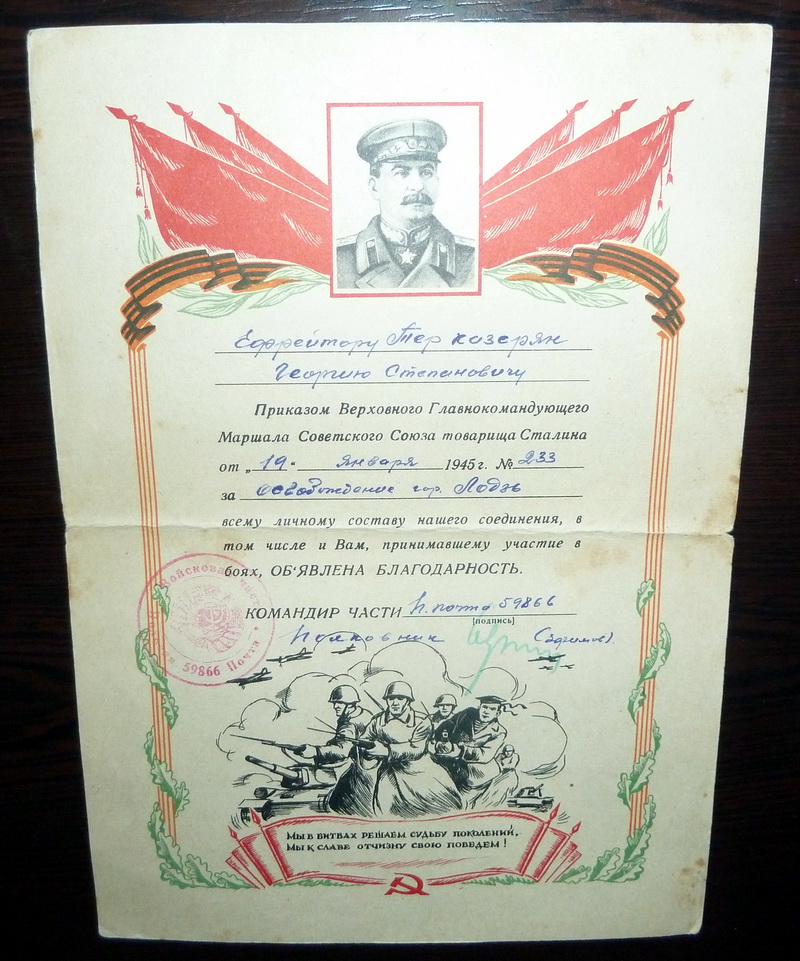 Ефрейтору Тер казерян
Георгию Степановичу
Приказом Верховного Главнокомандующего
Маршала Советского Союза товарища Сталина
от „19“ января 1945 г. № 233
за освобождение гор. Лодзь
всему личному составу нашего соединения, в
том числе и Вам, принимавшему участие в
боях, ОБ'ЯВЛЕНА БЛАГОДАРНОСТЬ.
Войсковая часть
59866 Почта
КОМАНДИР ЧАСТИ п. почта 59866
[подпись]
Полковник
МЫ В БИТВАХ РЕШАЕМ СУДЬБУ ПОКОЛЕНИЙ,
МЫ К СЛАВЕ ОТЧИЗНУ СВОЮ ПОВЕДЕМ!